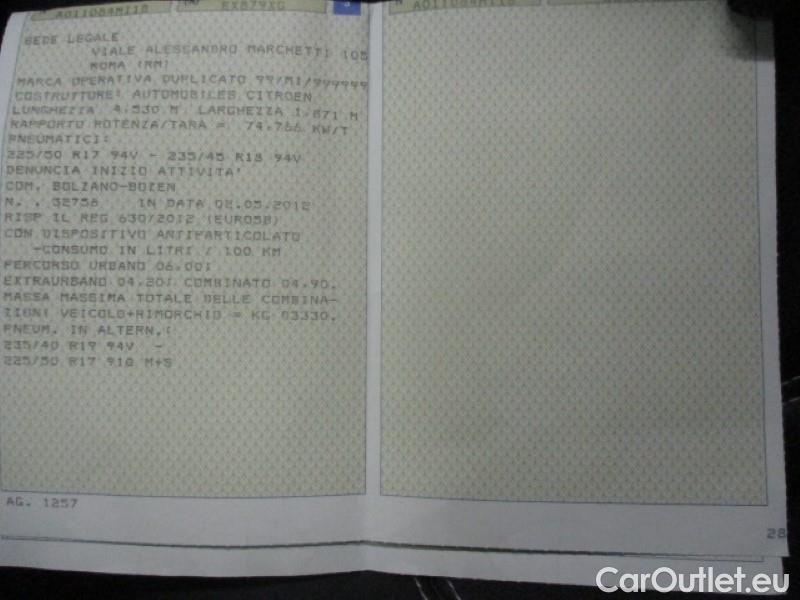 A011084MI18 EX879XG 3
SEDE LEGALE
VIALE ALESSANDRO MARCHETTI 105
ROMA (RM)
MARCA OPERATIVA DUPLICATO 99/MI/999999
COSTRUTTORE: AUTOMOBILES CITROEN
LUNGHEZZA 4,530 M LARGHEZZA 1,871 M
RAPPORTO POTENZA/TARA = 74,766 KW/T
PNEUMATICI:
225/50 R17 94V - 235/45 R18 94V
DENUNCIA INIZIO ATTIVITA'
COM. BOLZANO-BOZEN
N. . 32756 IN DATA 02.05.2012
RISP IL REG 630/2012 (EURO5B)
CON DISPOSITIVO ANTIPARTICOLATO
-CONSUMO IN LITRI / 100 KM
PERCORSO URBANO 06.00;
EXTRAURBANO 04.20; COMBINATO 04.90.
MASSA MASSIMA TOTALE DELLE COMBINA-
ZIONI VEICOLO+RIMORCHIO = KG 03330.
PNEUM. IN ALTERN.:
235/40 R19 94V -
225/50 R17 91Q M+S
AG. 1257
A011084MI18
28
CarOutlet.eu